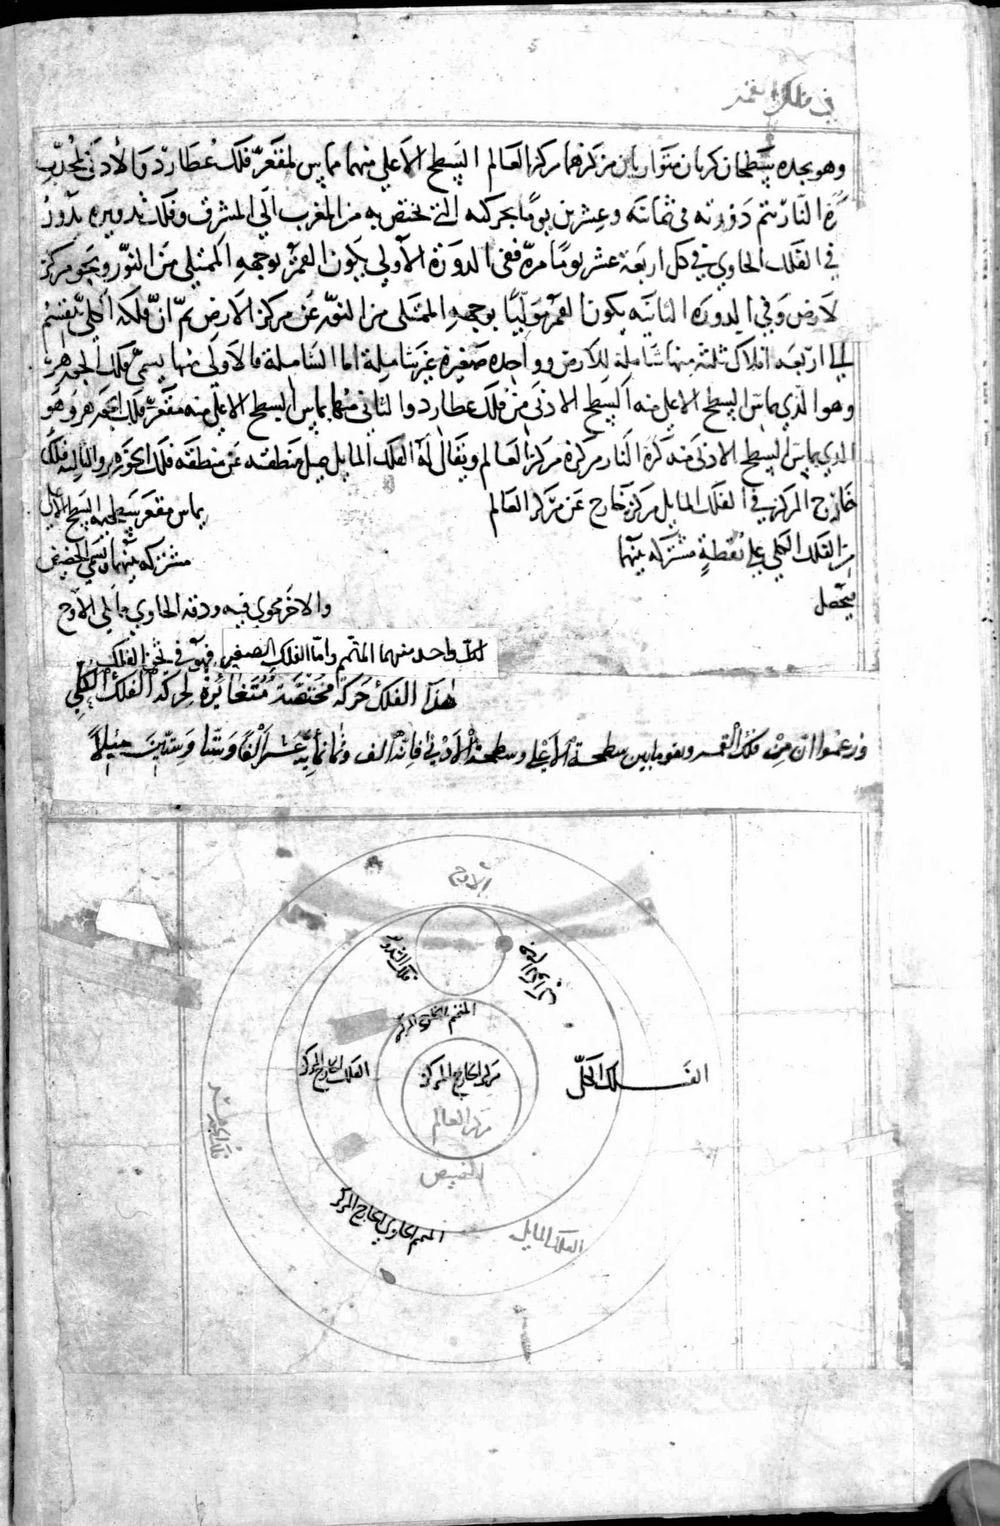 في فلك القمر
وهو يحده سطحان كريان متوازيان مركزهما مركز العالم السطح الاعلي منهما مماس لمقعر فلك عطارد والأدني لمحدب
كرة النار يتم دورته في ثمانية وعشرين يوما بحركته التي تختص به من المغرب الي المشرق وفلك تدويره يدور
في الفلك الحاوي في كل اربعة عشر يوما مرة ففي الدورة الأولي يكون القمر بوجهه الممتلي من النور ونحو مركز
الارض وفي الدورة الثانية يكون القمر موليا بوجهه الممتلى من النور عن مركز الارض ثم ان فلكه الكلي ينقسم
الي اربعة افلاك ثلثة منها شاملة للارض وواحدة صغيرة غير شاملة اما الشاملة فالاولى منها يسمى فلك الجوزهر
وهو الذي يماس السطح الاعلي منه السطح الادنى من فلك عطارد والثاني منها يماس السطح الاعلى منه مقعر فلك الجوزهر وهو
الذي يماس السطح الادنى منه كرة النار مركزه مركز العالم ويقال له الفلك المايل لميل منطقته عن منطقة فلك الجوزهر والثالثة فلك
خارج المركز في الفلك المايل مركزه خارج عن مركز العالم يماس مقعر سطحيه السطح الاعلى
من الفلك الكلي علي نقطة مشتركة بينهما مشتركة بينهما ويسمى الحضيض
فيحصل
والاخر محوى فيه ورقة الحاوي مما يلي الاوج
لكل واحد منهما المتمم واما الفلك الصغير فهو في ثخن الفلك
هذا الفلك حركة مختصة متغايرة لحركة الفلك الكلي
وزعموا ان من فلك القمر وهو ما بين سطحه الاعلى وسطحه الأدنى فانه الف وثمانمائة عشر الفا وستا وستين ميلا
الاوج
فلك التدوير
المتمم المحوي الخارج المركز
الفلك الخارج المركز
مركز الخارج المركز
مركز العالم
الفلك الكلي
الحضيض
فلك الجوزهر
المتمم الحاوي الخارج المركز
الفلك المايل